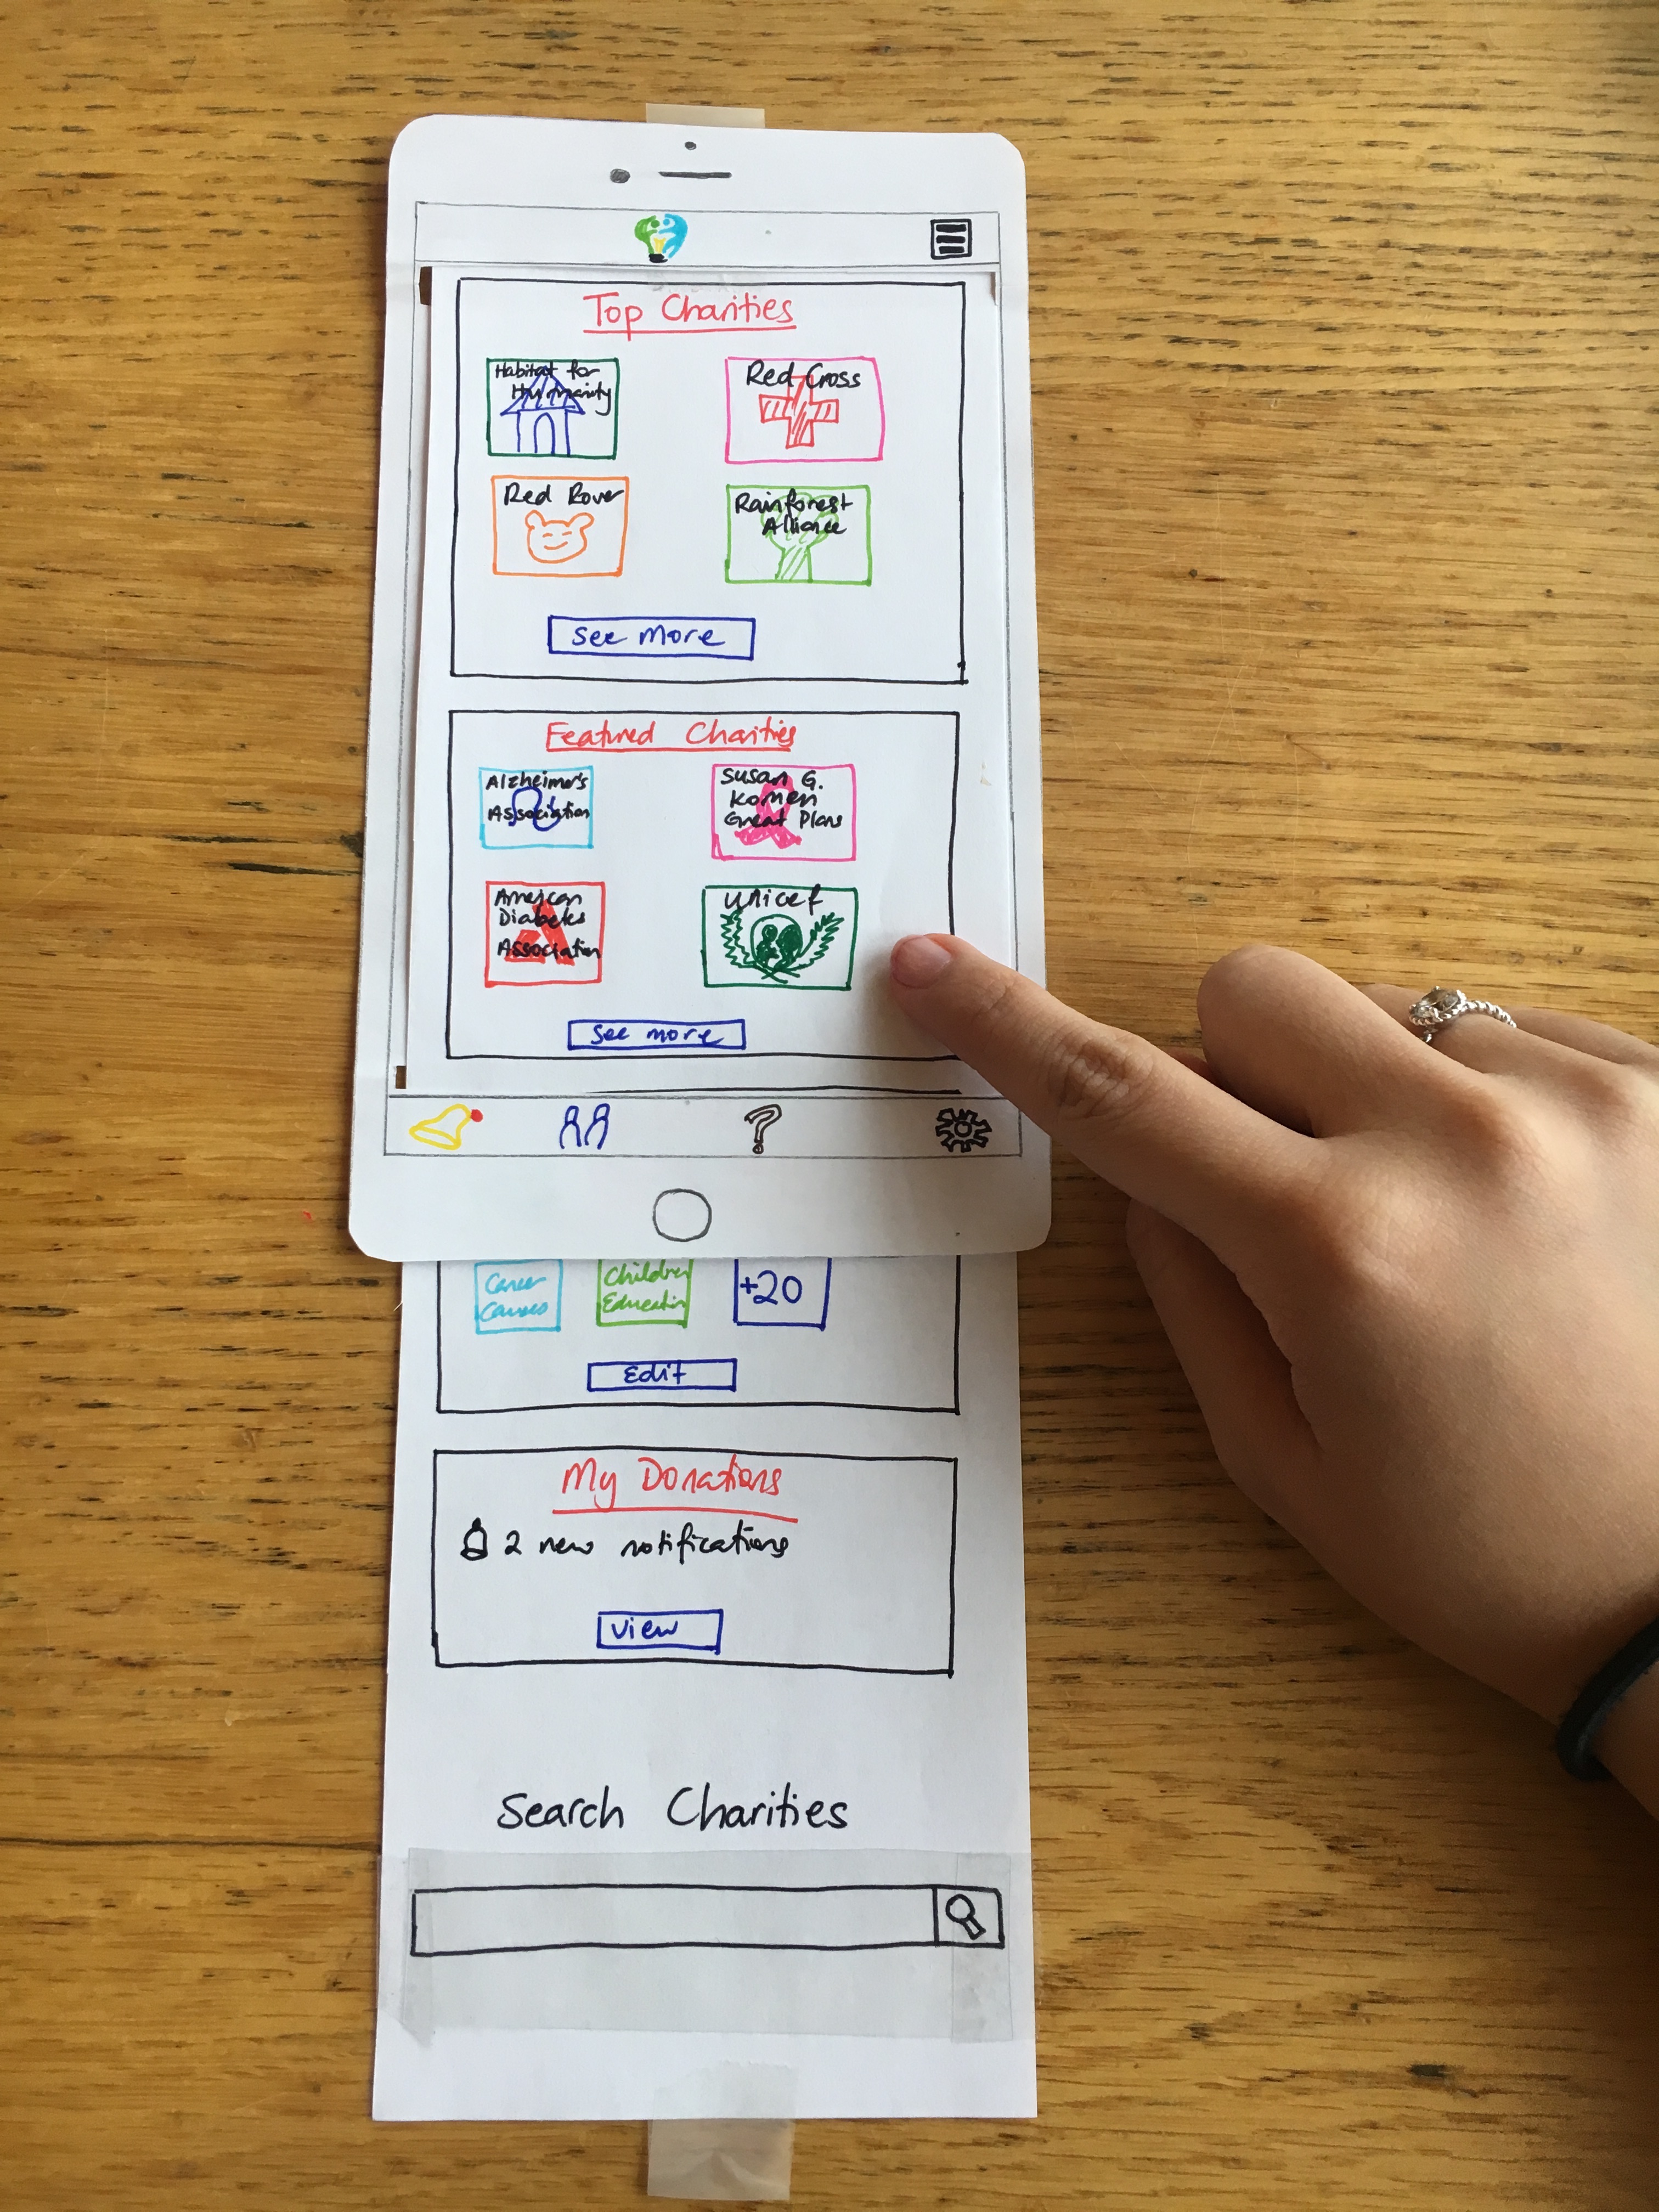 Top Charities
Habitat for
Humanity
Red Cross
Red Rover
Rainforest
Alliance
See More
Featured Charities
Alzheimer's
Association
Susan G.
Komen
Great Plans
American
Diabetes
Association
Unicef
See more
?
Cancer
Causes
Children
Education
+20
Edit
My Donations
2 new notifications
View
Search Charities